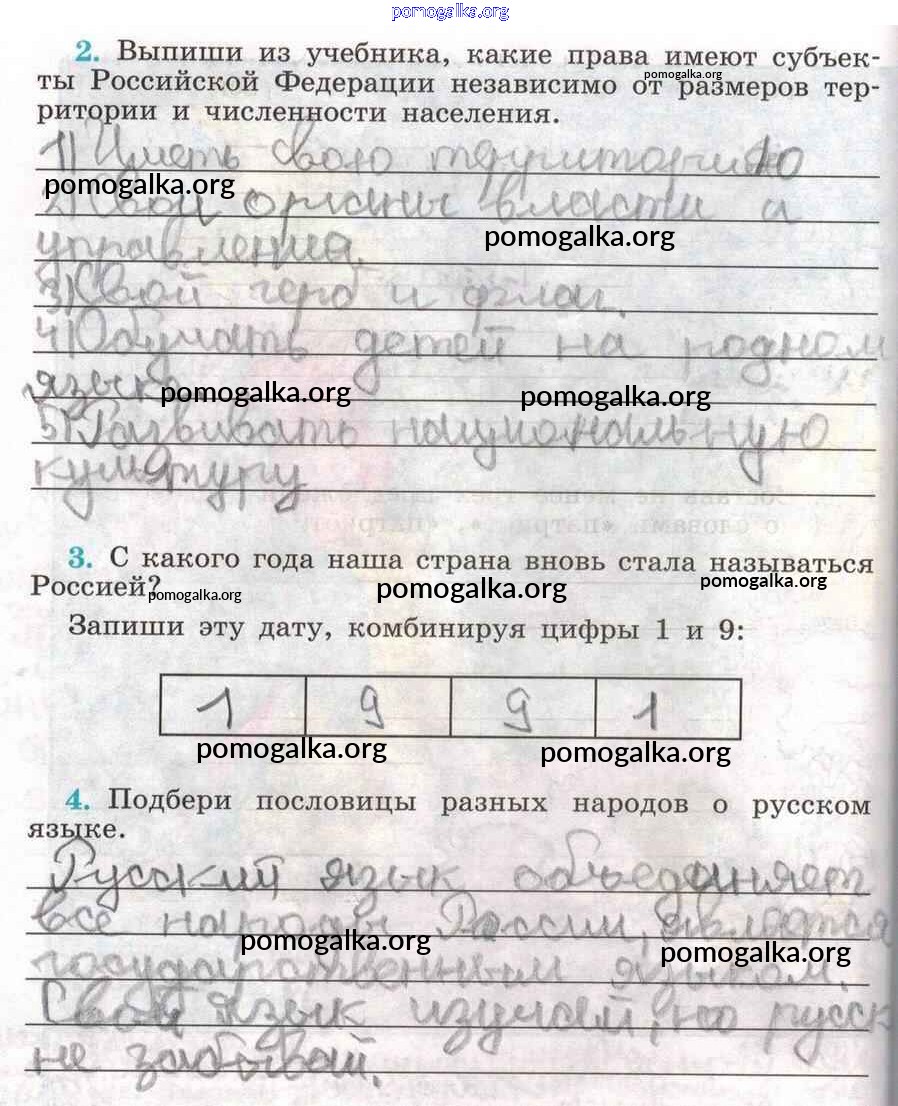 pomogalka.org
2. Выпиши из учебника, какие права имеют субъек-
pomogalka.org
ты Российской Федерации независимо от размеров тер-
ритории и численности населения.
1) Иметь свою территорию
pomogalka.org
2) Свои органы власти и
pomogalka.org
управления.
3) Свой герб и флаг.
4) Обучать детей на родном
языке
pomogalka.org
pomogalka.org
5) Развивать национальную
культуру
3. С какого года наша страна вновь стала называться
Россией?
pomogalka.org
pomogalka.org
pomogalka.org
Запиши эту дату, комбинируя цифры 1 и 9:
1 9 9 1
pomogalka.org
pomogalka.org
4. Подбери пословицы разных народов о русском
языке.
Русский язык объединяет
все народы России, является
pomogalka.org
pomogalka.org
государственным языком.
Свой язык изучай, но русск
не забывай.